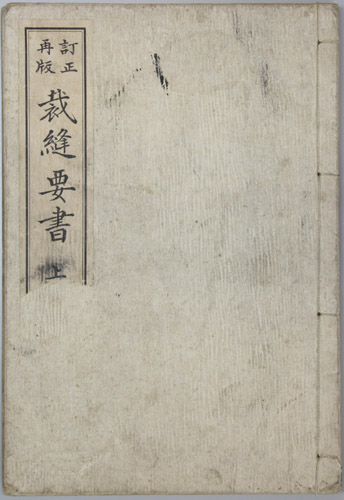 訂正
再版
裁縫要書 上